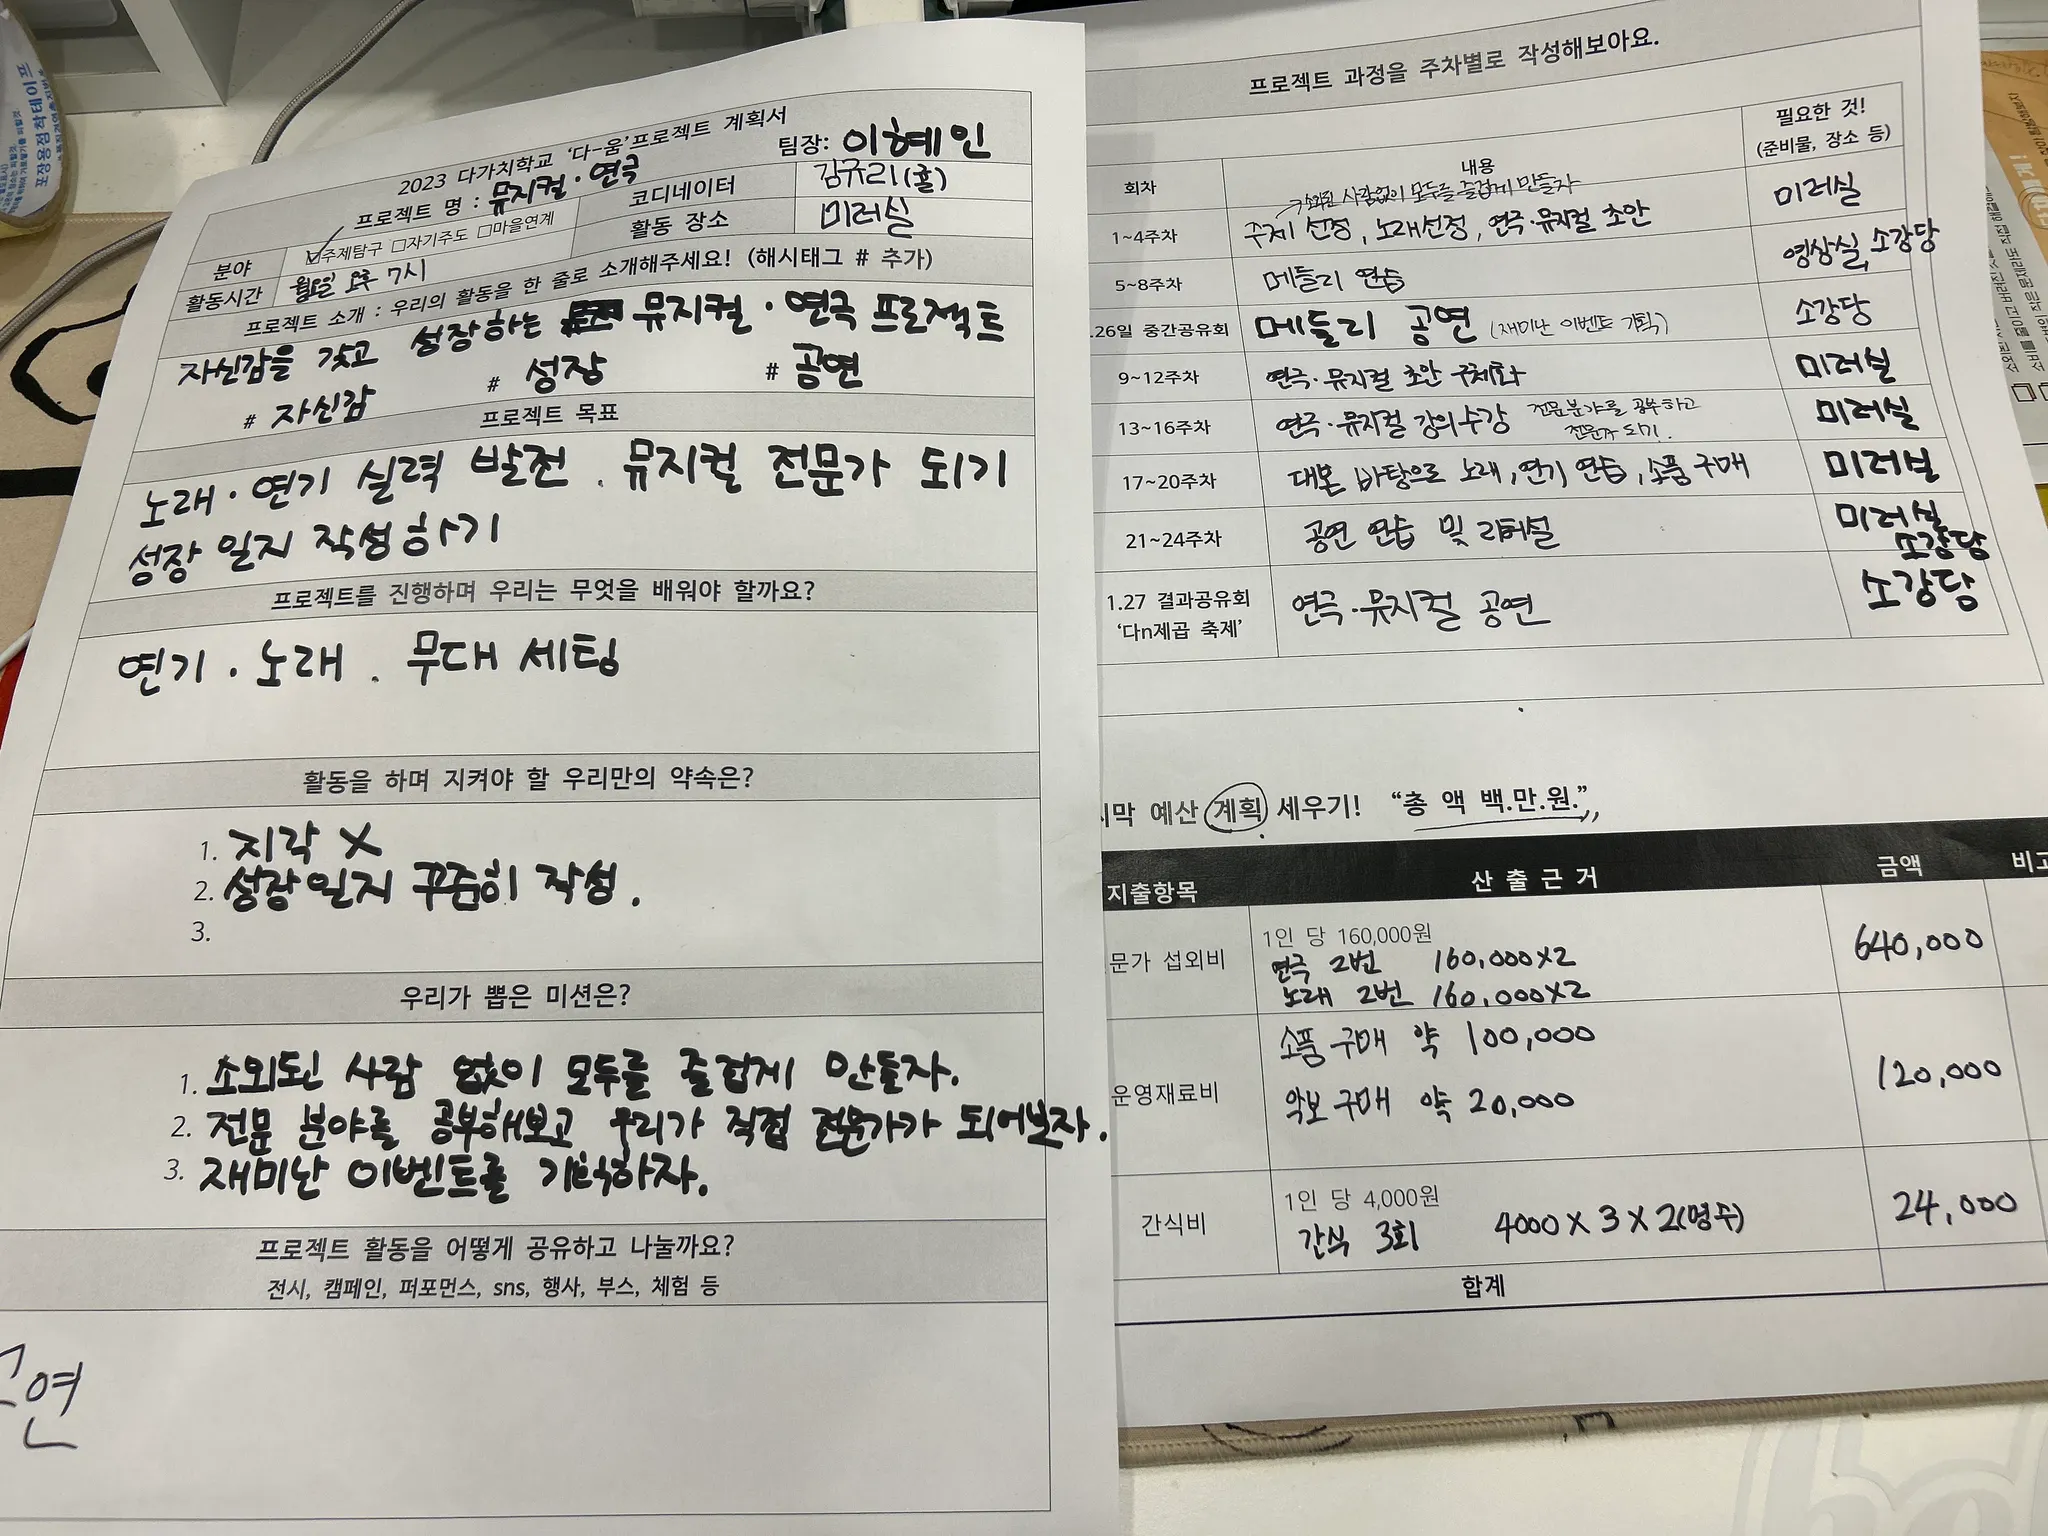 2023 다가치학교 '다-움'프로젝트 계획서
프로젝트 명 : 뮤지컬·연극
팀장: 이혜인
분야
☑주제탐구 □자기주도 □마을연계
코디네이터
김규리(홀)
활동시간
월요일 오후 7시
활동 장소
미러실
프로젝트 소개 : 우리의 활동을 한 줄로 소개해주세요! (해시태그 # 추가)
자신감을 갖고 성장하는 뮤지컬·연극 프로젝트
# 자신감 # 성장 # 공연
프로젝트 목표
노래·연기 실력 발전. 뮤지컬 전문가 되기
성장 일지 작성하기
프로젝트를 진행하며 우리는 무엇을 배워야 할까요?
연기. 노래. 무대 세팅
활동을 하며 지켜야 할 우리만의 약속은?
1. 지각 X
2. 성장일지 꾸준히 작성.
3.
우리가 뽑은 미션은?
1. 소외된 사람 없이 모두를 즐겁게 만들자.
2. 전문 분야를 공부해보고 우리가 직접 전문가가 되어보자.
3. 재미난 이벤트를 기획하자.
프로젝트 활동을 어떻게 공유하고 나눌까요?
전시, 캠페인, 퍼포먼스, sns, 행사, 부스, 체험 등
공연
프로젝트 과정을 주차별로 작성해보아요.
회차
내용
필요한 것!
(준비물, 장소 등)
→소외된 사람없이 모두를 즐겁게 만들자
1~4주차
주제 선정, 노래선정, 연극·뮤지컬 초안
미러실
5~8주차
메들리 연습
영상실, 소강당
.26일 중간공유회
메들리 공연 (재미난 이벤트 기획)
소강당
9~12주차
연극·뮤지컬 초안 구체화
미러실
13~16주차
연극·뮤지컬 강의수강
전문분야를 공부하고
전문가 되기.
미러실
17~20주차
대본 바탕으로 노래, 연기 연습, 소품 구매
미러실
21~24주차
공연 연습 및 리허설
미러실
소강당
1.27 결과공유회
'다n제곱 축제'
연극·뮤지컬 공연
소강당
막 예산 계획 세우기! "총 액 백.만.원."
지출항목
산 출 근 거
금액
비고
문가 섭외비
1인 당 160,000원
연극 2번 160,000X2
노래 2번 160,000X2
640,000
운영재료비
소품 구매 약 100,000
악보 구매 약 20,000
120,000
간식비
1인 당 4,000원
간식 3회 4000 X 3 X 2(명수)
24,000
합계
포장용점착테이프